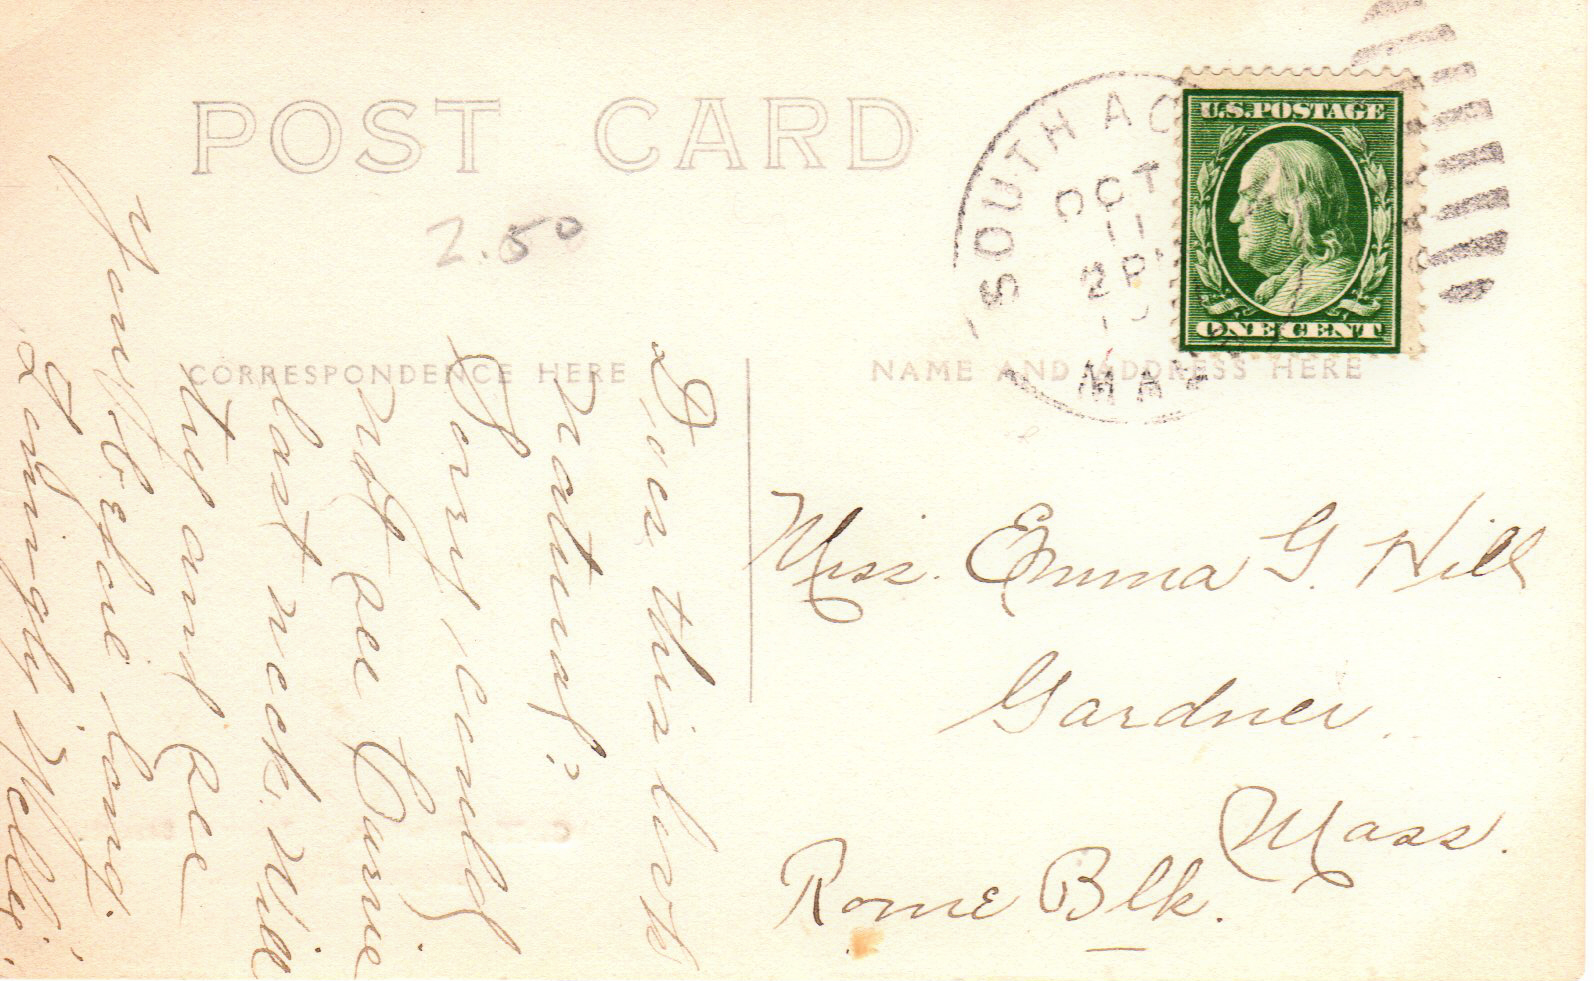 POST CARD
2.50
SOUTH AC
OCT
11
2 P
MASS
U.S. POSTAGE
ONE CENT
CORRESPONDENCE HERE
NAME AND ADDRESS HERE
Does this look
natural?
Sorry, could
not see Carrie
last week. Will
try and see
you before long.
Lovingly, Nellie.
Miss. Emma G. Hill
Gardner.
Mass.
Rome Blk.